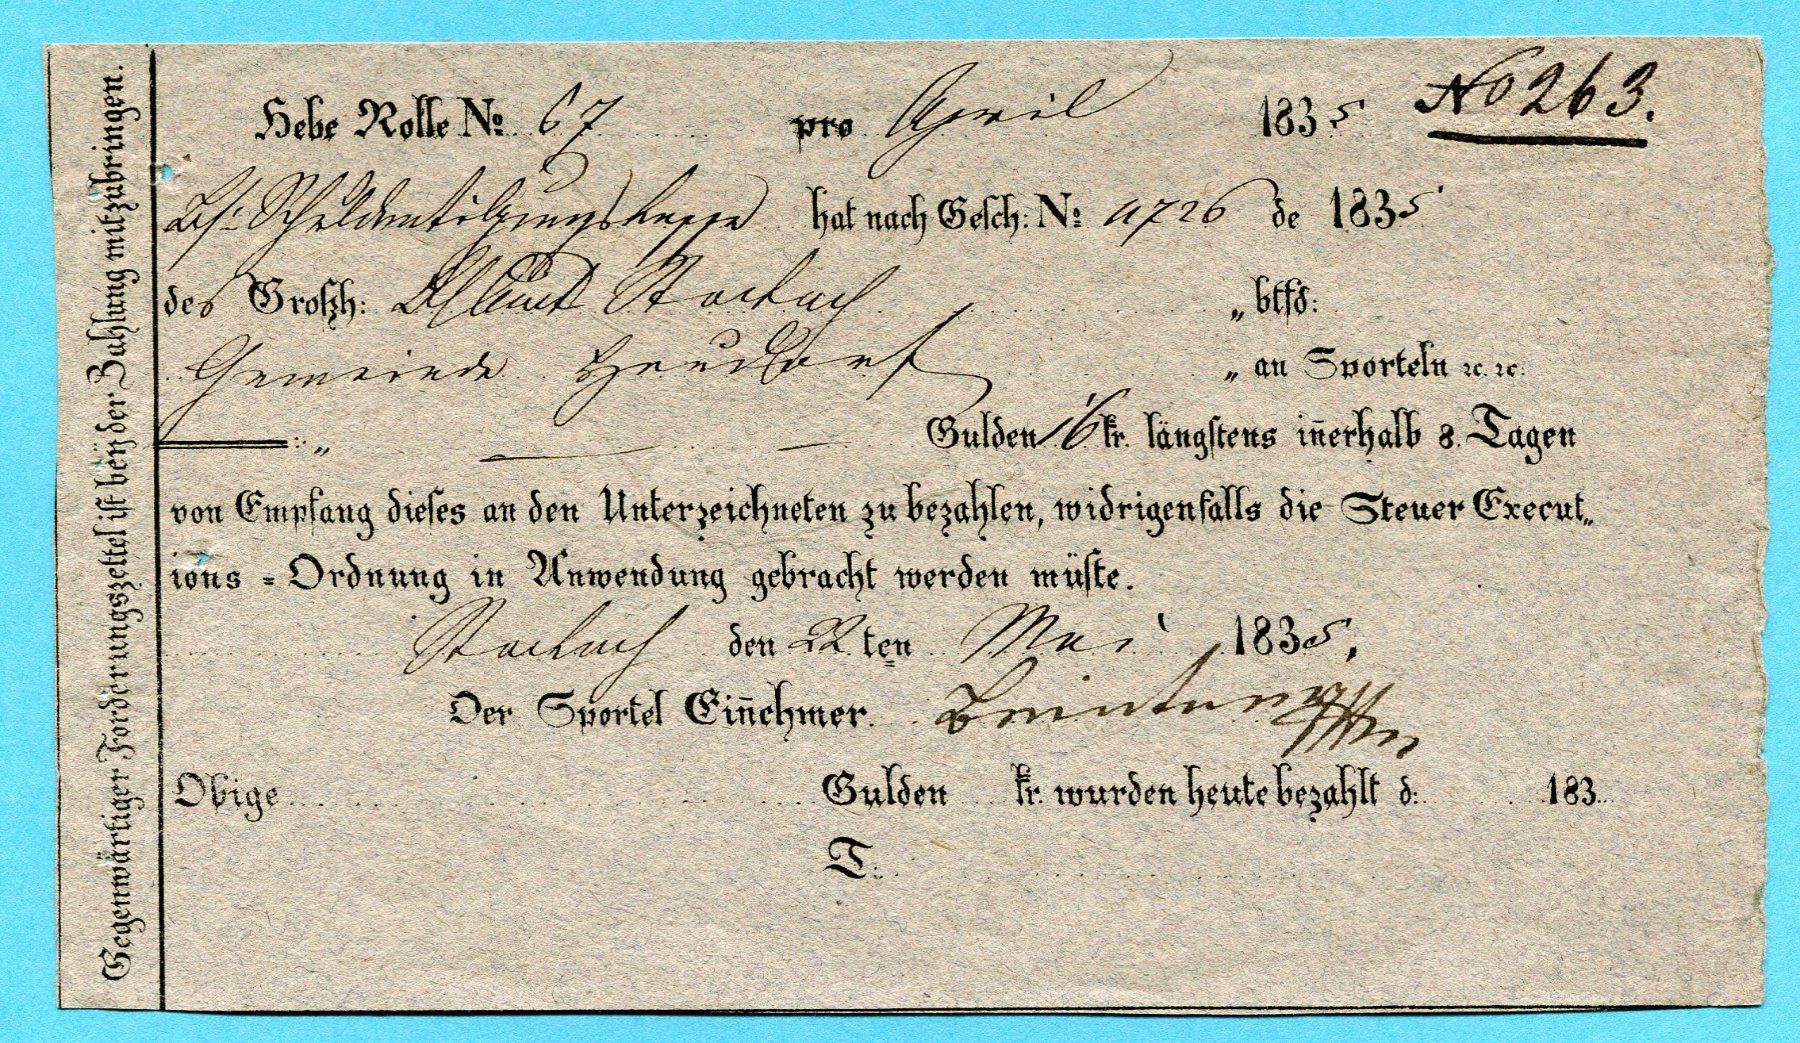 Gegenwärtiger Forderungszettel ist beÿ der Zahlung mitzubringen.
No 263.
Hebe Rolle No. 67 pro April 1835
Schuldentilgungskasse hat nach Gesch: No. 4726 de 1835
des Großh: Stockach „ btfd:
Gemeinde Heudorf „ an Sporteln ꝛc. ꝛc:
„ Gulden 16 kr. längstens iñerhalb 8. Tagen
von Empfang dieses an den Unterzeichneten zu bezahlen, widrigenfalls die Steuer Execut„
ions = Ordnung in Anwendung gebracht werden müste.
Stockach den 22 ten Mai 1835.
Der Sportel Eiñehmer.
Obige Gulden kr. wurden heute bezahlt d: 183
T: